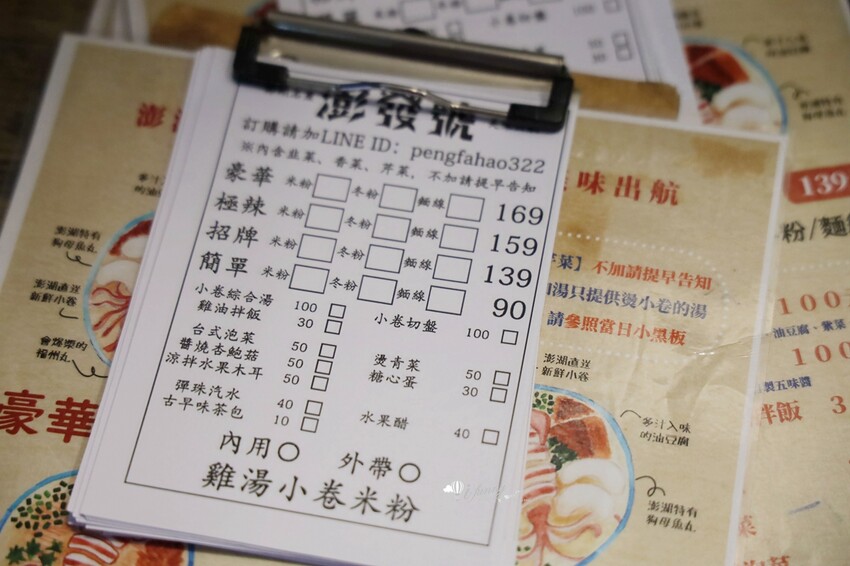 澎發號
訂購請加LINE ID: pengfahao322
※內含韭菜、香菜、芹菜,不加請提早告知
豪華 米粉 冬粉 麵線 169
極辣 米粉 冬粉 麵線 159
招牌 米粉 冬粉 麵線 139
簡單 米粉 冬粉 麵線 90
小卷綜合湯 100 小卷切盤 100
雞油拌飯 30
台式泡菜 50 燙青菜 50
醬燒杏鮑菇 50 糖心蛋 30
涼拌水果木耳 50
彈珠汽水 40 水果醋 40
古早味茶包 10
內用 外帶
雞湯小卷米粉
澎
澎湖特有
狗母魚丸
澎湖直送
新鮮小卷
福州丸
豪華
味出航
菜】不加請提早告知
湯只提供燙小卷的湯
請參照當日小黑板
澎湖直送
新鮮小卷
澎湖特有
狗母魚丸
139
粉/麵
100
油豆腐、
100
製五味醬
拌飯 3